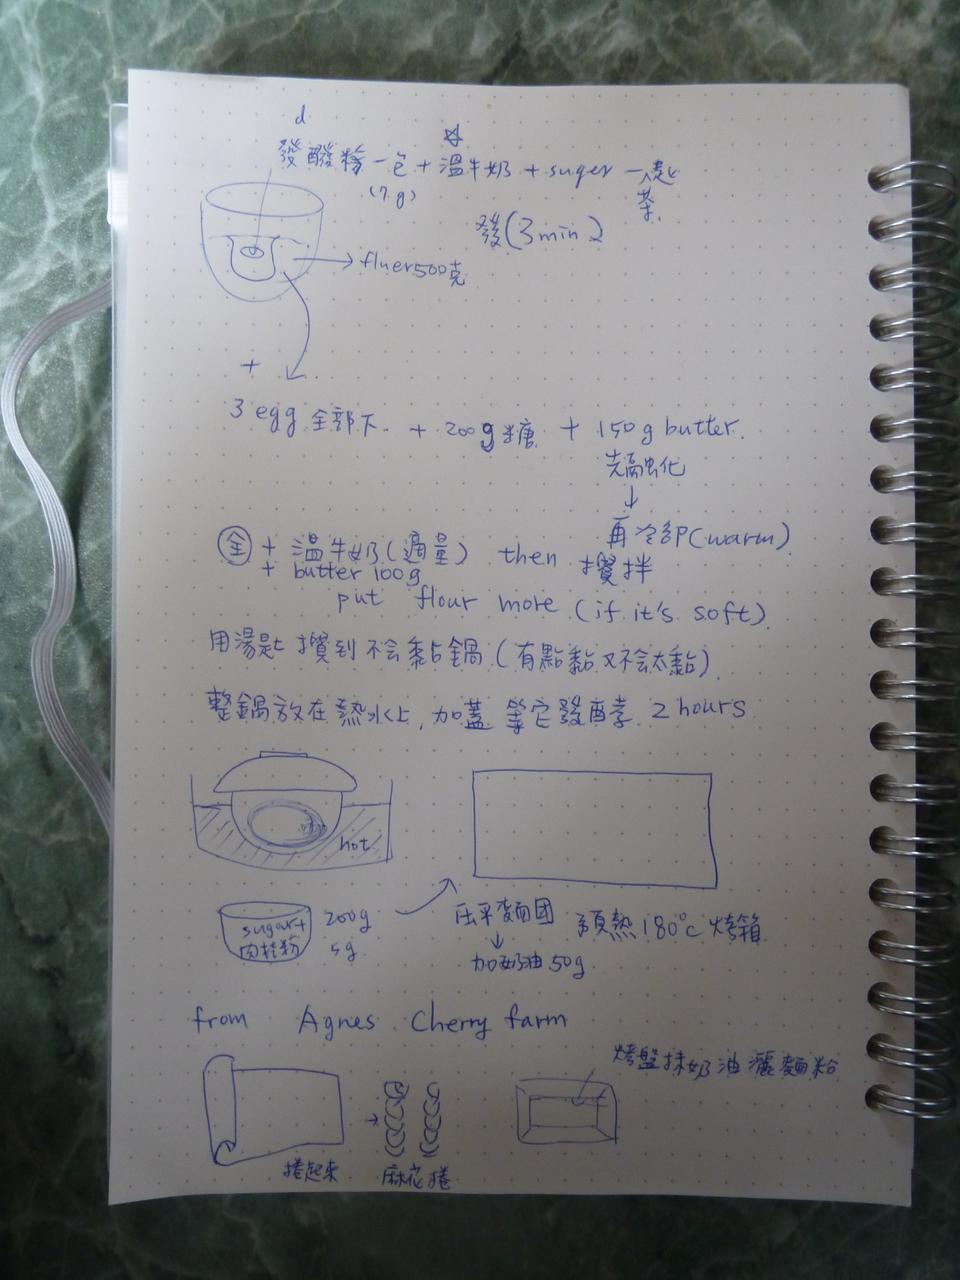 d
發酵粉一包+溫牛奶+suger 一匙
(7g) 茶
發(3min)
fluer500克
+
3 egg 全部下 + 200g糖 + 150g butter.
先融化
↓
再冷卻(warm)
全 + 溫牛奶(適量) then 攪拌
+ butter 100g
put flour more (if it's soft)
用湯匙攪到不会黏鍋(有點黏又不会太黏)
整鍋放在熱水上,加蓋 等它發酵 2 hours
hot
sugar+ 200g
肉桂粉 5g
压平麵团 預熱180°c烤箱
↓
加奶油50g
from Agnes Cherry farm
烤盤抹奶油灑麵粉
捲起來 麻花捲